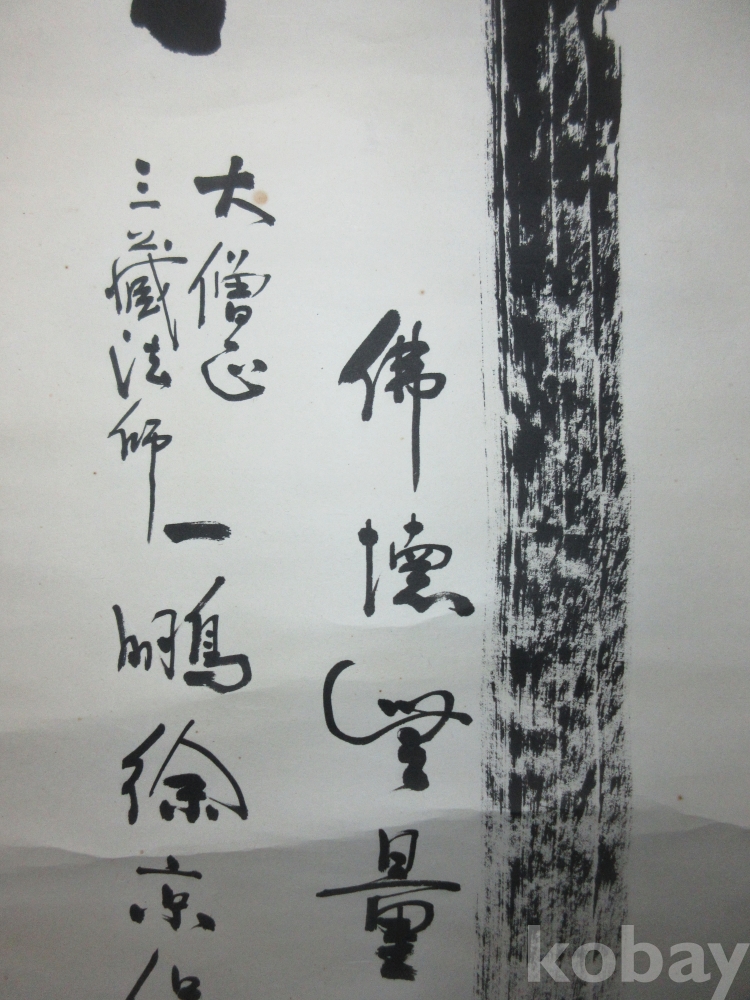 佛德無量
大僧正
三藏法師
一鵬徐京
kobay